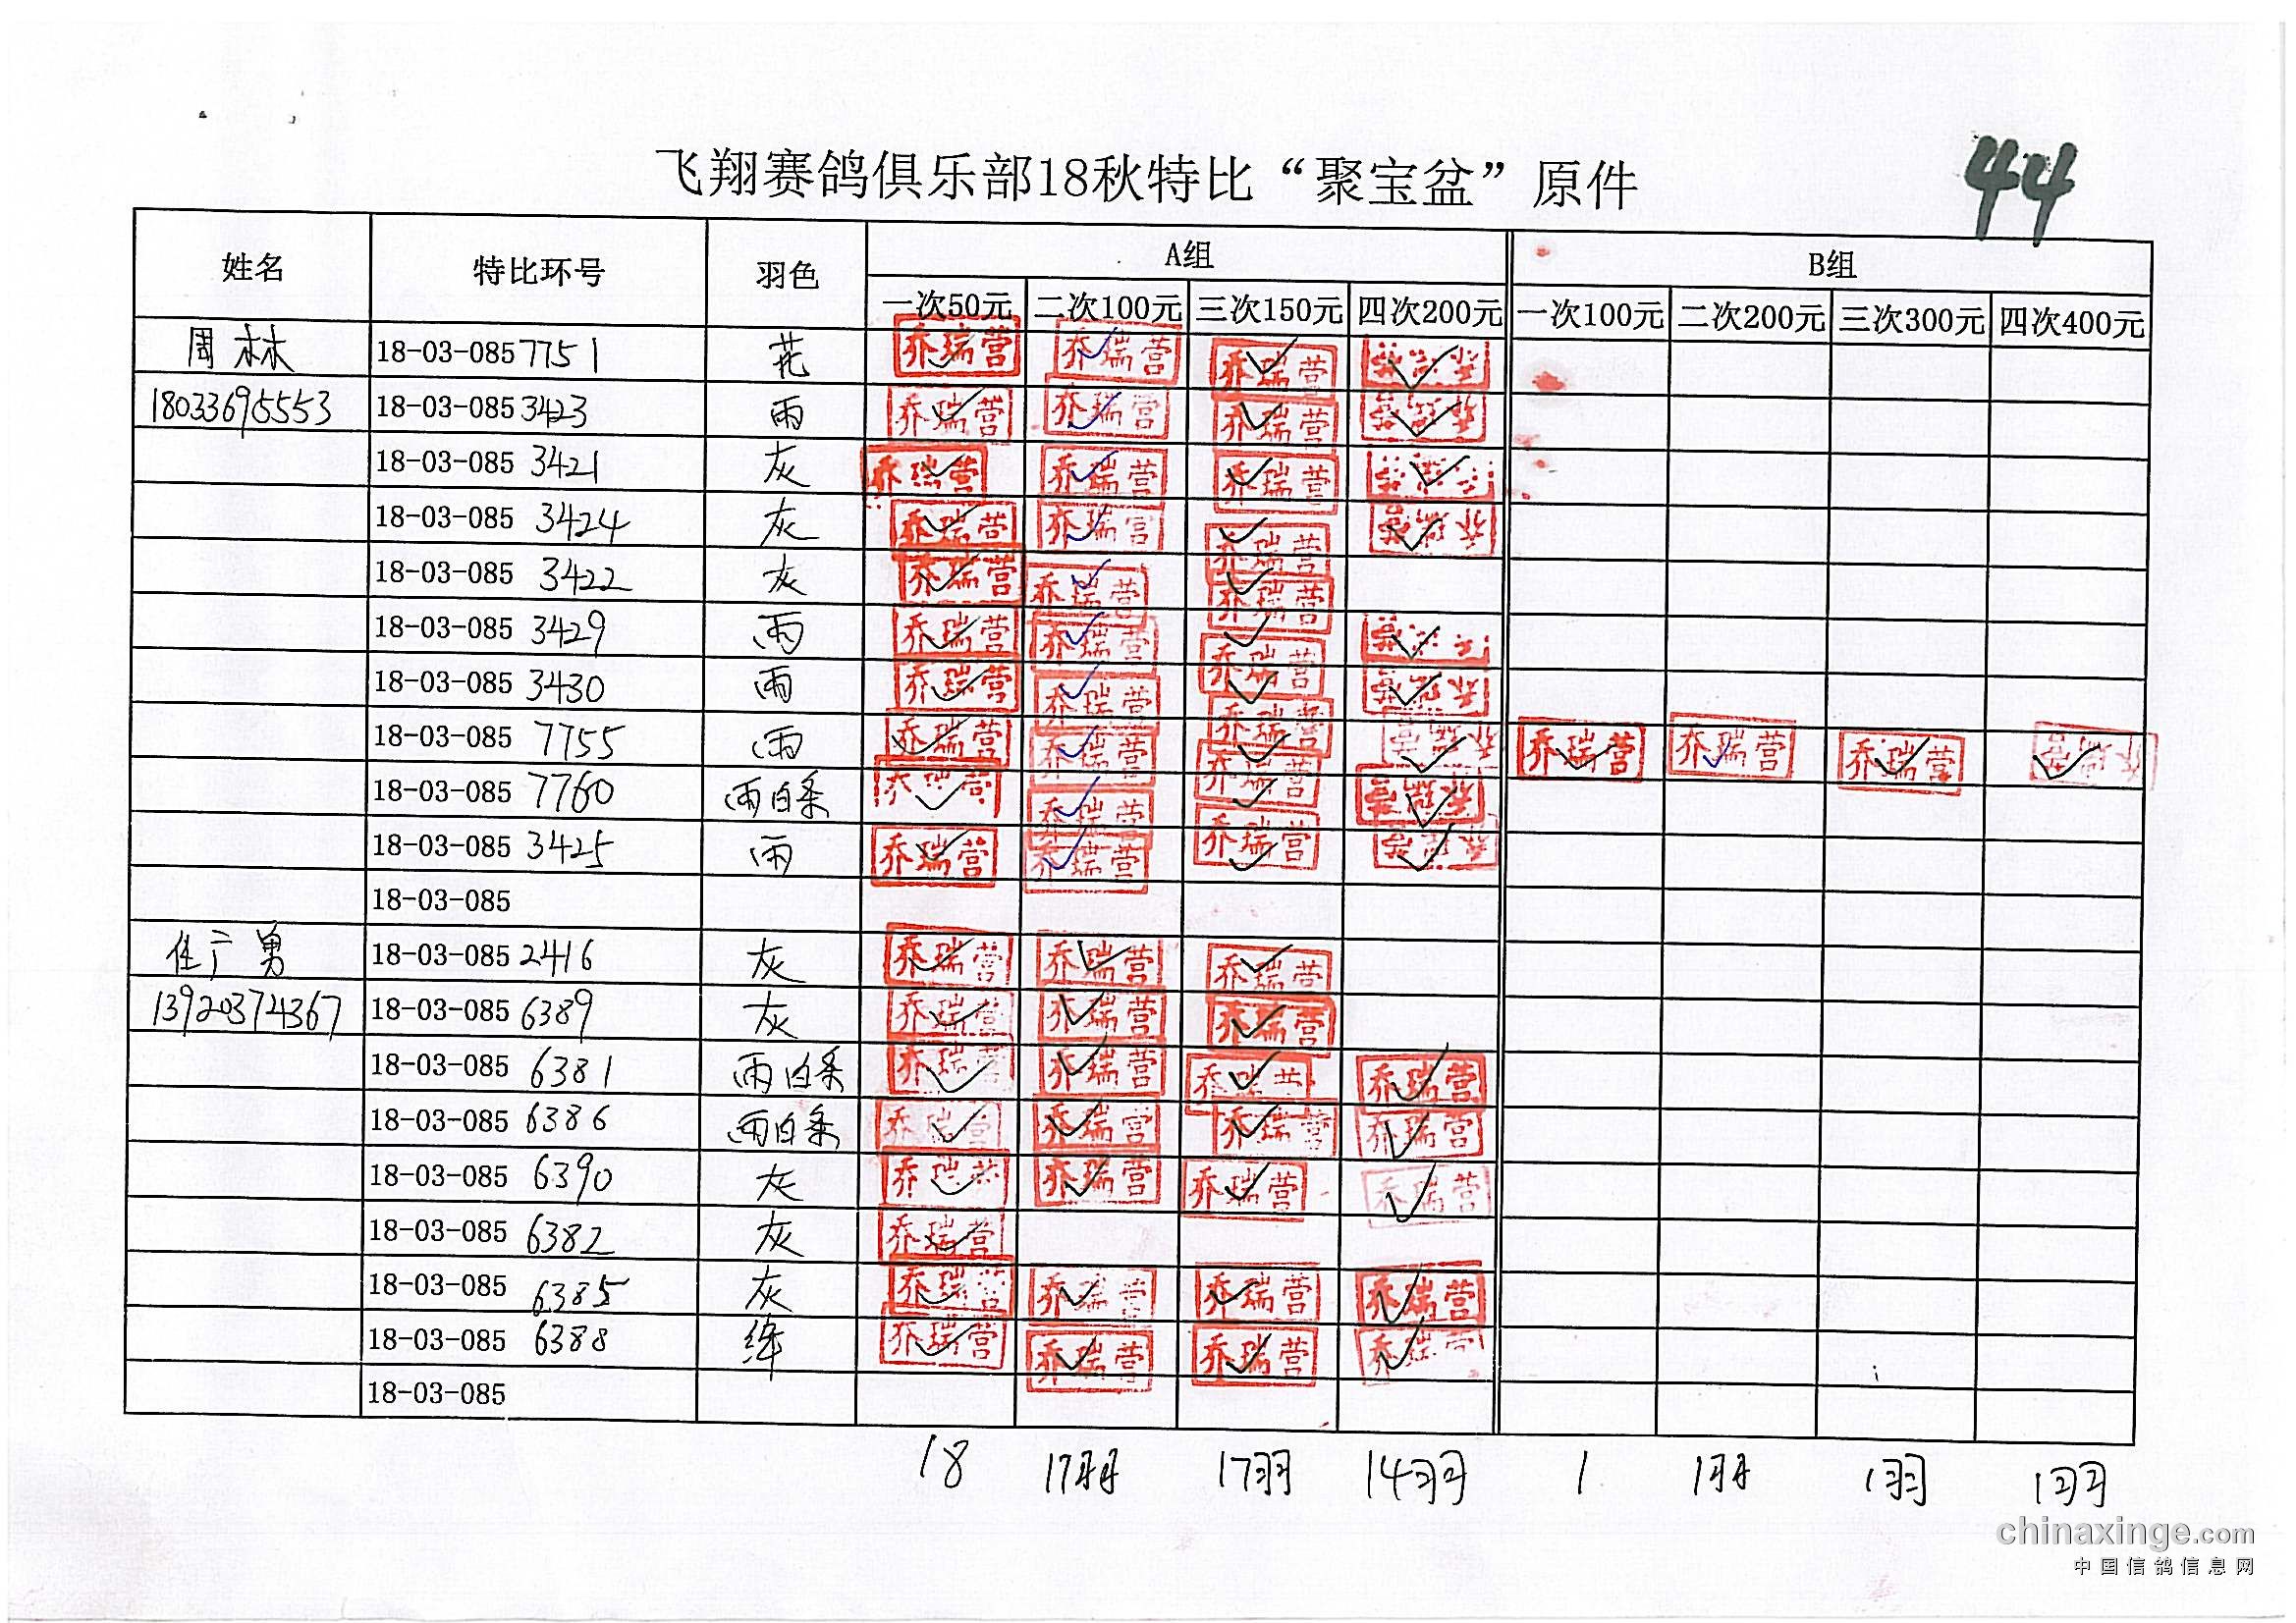 44
飞翔赛鸽俱乐部18秋特比“聚宝盆”原件
姓名 特比环号 羽色 A组 B组
一次50元 二次100元 三次150元 四次200元 一次100元 二次200元 三次300元 四次400元
周林 18-03-085 7751 花 乔瑞营 ✓ 乔瑞营 ✓ 乔瑞营 ✓ ✓
18033695553 18-03-085 3423 雨 乔瑞营 ✓ 乔瑞营 ✓ 乔瑞营 ✓ ✓
18-03-085 3421 灰 乔瑞营 ✓ 乔瑞营 ✓ 乔瑞营 ✓ ✓
18-03-085 3424 灰 乔瑞营 ✓ 乔瑞营 ✓ 乔瑞营 ✓ 乔瑞营 ✓
18-03-085 3422 灰 乔瑞营 ✓ 乔瑞营 ✓ 乔瑞营 ✓
18-03-085 3429 雨 乔瑞营 ✓ 乔瑞营 ✓ 乔瑞营 ✓ ✓
18-03-085 3430 雨 乔瑞营 ✓ 乔瑞营 ✓ 乔瑞营 ✓ 乔瑞营 ✓
18-03-085 7755 雨 乔瑞营 ✓ 乔瑞营 ✓ 乔瑞营 ✓ 乔瑞营 ✓ 乔瑞营 ✓ 乔瑞营 ✓ 乔瑞营 ✓ 乔瑞营 ✓
18-03-085 7760 雨白条 乔瑞营 ✓ 乔瑞营 ✓ 乔瑞营 ✓ 乔瑞营 ✓
18-03-085 3425 雨 乔瑞营 ✓ 乔瑞营 ✓ ✓ 乔瑞营 ✓
18-03-085
任广勇 18-03-085 2416 灰 乔瑞营 ✓ 乔瑞营 ✓ 乔瑞营 ✓
13920374367 18-03-085 6389 灰 乔瑞营 ✓ 乔瑞营 ✓ 乔瑞营 ✓
18-03-085 6381 雨白条 乔瑞营 ✓ 乔瑞营 ✓ 乔瑞营 ✓ 乔瑞营 ✓
18-03-085 6386 雨白条 乔瑞营 ✓ 乔瑞营 ✓ 乔瑞营 ✓ 乔瑞营 ✓
18-03-085 6390 灰 乔瑞营 ✓ 乔瑞营 ✓ 乔瑞营 ✓ 乔瑞营 ✓
18-03-085 6382 灰 乔瑞营 ✓
18-03-085 6385 灰 乔瑞营 ✓ 乔瑞营 ✓ 乔瑞营 ✓ 乔瑞营 ✓
18-03-085 6388 绛 乔瑞营 ✓ 乔瑞营 ✓ 乔瑞营 ✓ 乔瑞营 ✓
18-03-085
18 17羽 17羽 14羽 1 1羽 1羽 1羽
chinaxinge.com
中国信鸽信息网